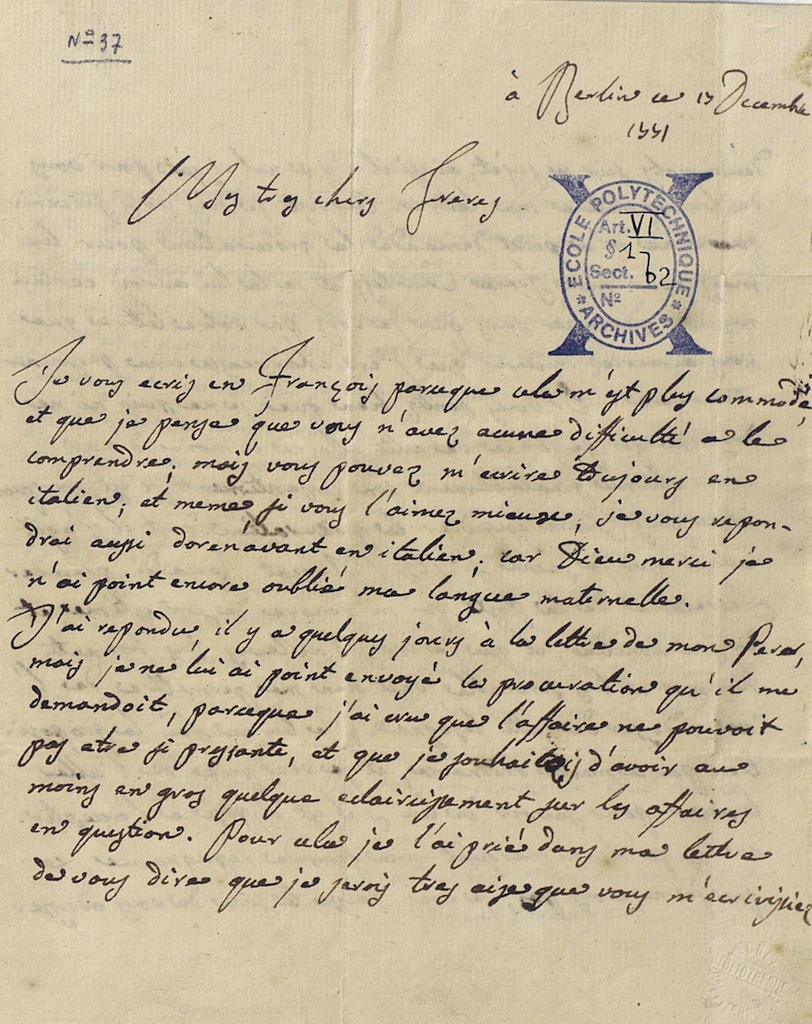 Nº 37
à Berlin ce 13 Decembre
1771
Mes tres chers Freres
ECOLE POLYTECHNIQUE
ARCHIVES
Art. VI
§ 1
Sect. b2
Nº
Je vous ecris en François parceque cela m'est plus commode,
et que je pense que vous n'avez aucune difficulté a le
comprendre; mais vous pouvez m'ecrire toujours en
italien; et meme si vous l'aimez mieux, je vous repon-
drai aussi dorenavant en italien; car Dieu merci je
n'ai point encore oublié ma langue maternelle.
J'ai repondu il y a quelques jours à la lettre de mon Pere,
mais je ne lui ai point envoyé la procuration qu'il me
demandoit, parceque j'ai cru que l'affaire ne pouvoit
pas etre si pressante, et que je souhaitois d'avoir au
moins en gros quelque eclaircissement sur les affaires
en question. Pour cela je l'ai prié dans ma lettre
de vous dire que je serois tres aise que vous m'ecrivissiez